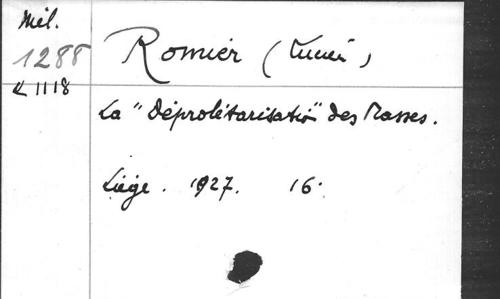 Mél.
1288
L 1118
Romier (Lucien)
La "Déprolétarisation" des Masses.
Liége. 1927. 16°